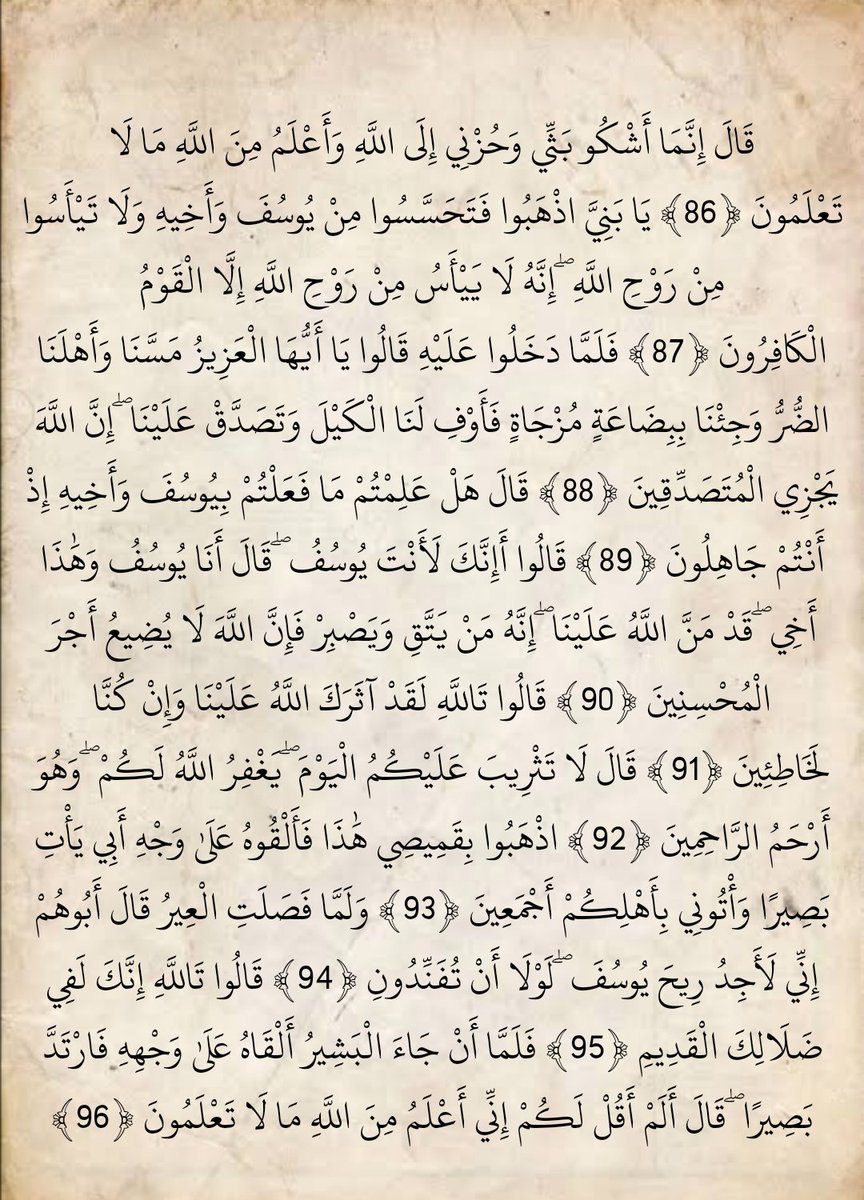 قَالَ إِنَّمَا أَشْكُو بَثِّي وَحُزْنِي إِلَى اللَّهِ وَأَعْلَمُ مِنَ اللَّهِ مَا لَا
تَعْلَمُونَ ﴿86﴾ يَا بَنِيَّ اذْهَبُوا فَتَحَسَّسُوا مِنْ يُوسُفَ وَأَخِيهِ وَلَا تَيْأَسُوا
مِنْ رَوْحِ اللَّهِ ۖ إِنَّهُ لَا يَيْأَسُ مِنْ رَوْحِ اللَّهِ إِلَّا الْقَوْمُ
الْكَافِرُونَ ﴿87﴾ فَلَمَّا دَخَلُوا عَلَيْهِ قَالُوا يَا أَيُّهَا الْعَزِيزُ مَسَّنَا وَأَهْلَنَا
الضُّرُّ وَجِئْنَا بِبِضَاعَةٍ مُزْجَاةٍ فَأَوْفِ لَنَا الْكَيْلَ وَتَصَدَّقْ عَلَيْنَا ۖ إِنَّ اللَّهَ
يَجْزِي الْمُتَصَدِّقِينَ ﴿88﴾ قَالَ هَلْ عَلِمْتُمْ مَا فَعَلْتُمْ بِيُوسُفَ وَأَخِيهِ إِذْ
أَنْتُمْ جَاهِلُونَ ﴿89﴾ قَالُوا أَإِنَّكَ لَأَنْتَ يُوسُفُ ۖ قَالَ أَنَا يُوسُفُ وَهَٰذَا
أَخِي ۖ قَدْ مَنَّ اللَّهُ عَلَيْنَا ۖ إِنَّهُ مَنْ يَتَّقِ وَيَصْبِرْ فَإِنَّ اللَّهَ لَا يُضِيعُ أَجْرَ
الْمُحْسِنِينَ ﴿90﴾ قَالُوا تَاللَّهِ لَقَدْ آثَرَكَ اللَّهُ عَلَيْنَا وَإِنْ كُنَّا
لَخَاطِئِينَ ﴿91﴾ قَالَ لَا تَثْرِيبَ عَلَيْكُمُ الْيَوْمَ ۖ يَغْفِرُ اللَّهُ لَكُمْ ۖ وَهُوَ
أَرْحَمُ الرَّاحِمِينَ ﴿92﴾ اذْهَبُوا بِقَمِيصِي هَٰذَا فَأَلْقُوهُ عَلَىٰ وَجْهِ أَبِي يَأْتِ
بَصِيرًا وَأْتُونِي بِأَهْلِكُمْ أَجْمَعِينَ ﴿93﴾ وَلَمَّا فَصَلَتِ الْعِيرُ قَالَ أَبُوهُمْ
إِنِّي لَأَجِدُ رِيحَ يُوسُفَ ۖ لَوْلَا أَنْ تُفَنِّدُونِ ﴿94﴾ قَالُوا تَاللَّهِ إِنَّكَ لَفِي
ضَلَالِكَ الْقَدِيمِ ﴿95﴾ فَلَمَّا أَنْ جَاءَ الْبَشِيرُ أَلْقَاهُ عَلَىٰ وَجْهِهِ فَارْتَدَّ
بَصِيرًا ۖ قَالَ أَلَمْ أَقُلْ لَكُمْ إِنِّي أَعْلَمُ مِنَ اللَّهِ مَا لَا تَعْلَمُونَ ﴿96﴾